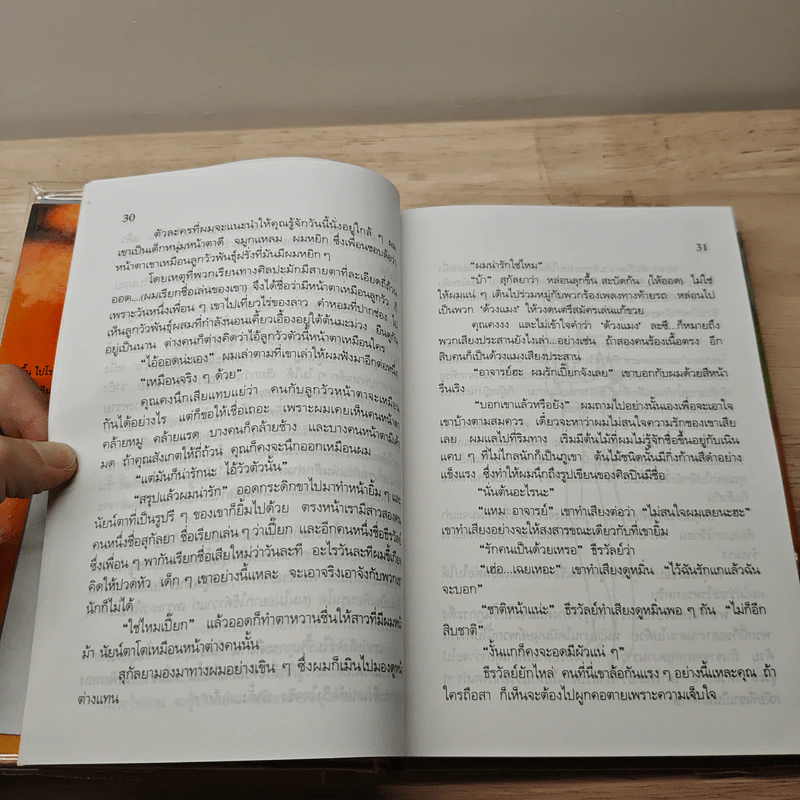 30
ตัวละครที่ผมจะแนะนำให้คุณรู้จักวันนี้นั่งอยู่ใกล้ ๆ ผม
เขาเป็นเด็กหนุ่มหน้าตาดี จมูกแหลม ผมหยิก ซึ่งเพื่อนชอบล้อว่า
หน้าตาเขาเหมือนลูกวัวพันธุ์ฝรั่งที่มันมีผมหยิก ๆ
โดยเหตุที่พวกเรียนทางศิลปะมักมีสายตาที่ละเอียดถี่ถ้วน
ออด....(ผมเรียกชื่อเล่นของเขา) จึงได้ชื่อว่ามีหน้าตาเหมือนลูกวัว ก็
เพราะวันหนึ่งเพื่อน ๆ เขาไปเที่ยวไร่ของลาว คำหอมที่ปากช่อง
เห็นลูกวัวพันธุ์ผสมที่กำลังนอนเคี้ยวเอื้องอยู่ใต้ต้นมะม่วง ยืนดูกัน
อยู่เป็นนาน ต่างคนก็ต่างคิดว่าไอ้ลูกวัวตัวนี้หน้าตาเหมือนใคร
“ไอ้ออดน่ะเอง” ผมเล่าตามที่เขาเล่าให้ผมฟังมาอีกต่อหนึ่ง
“เหมือนจริง ๆ ด้วย”
คุณคงนึกเสียแทบแย่ว่า คนกับลูกวัวหน้าตาจะเหมือน
กันได้อย่างไร แต่ก็ขอให้เชื่อเถอะ เพราะผมเคยเห็นคนหน้าตา
คล้ายหมู คล้ายแรด บางคนก็คล้ายช้าง และบางคนหน้าตามีเค้า
มด ถ้าคุณสังเกตให้ถี่ถ้วน คุณก็คงจะนึกออกเหมือนผม
“แต่มันก็น่ารักนะ ไอ้วัวตัวนั้น”
“สรุปแล้วผมน่ารัก” ออดกระดิกขาไปมาทำหน้ายิ้ม ๆ และ
นัยน์ตาที่เป็นรูปรี ๆ ของเขาก็ยิ้มไปด้วย ตรงหน้าเรามีสาวสองคน
คนหนึ่งชื่อสุกัลยา ชื่อเรียกเล่น ๆ ว่าเปี๊ยก และอีกคนหนึ่งชื่อธีรวัลย์
ซึ่งเพื่อน ๆ พากันเรียกชื่อเสียใหม่ว่าวันละที อะไรวันละทีผมขี้เกียจ
คิดให้ปวดหัว เด็ก ๆ เขาอย่างนี้แหละ จะเอาจริงเอาจังกับพวกเขา
นักก็ไม่ได้
“ใช่ไหมเปี๊ยก” แล้วออดก็ทำตาหวานชื่นให้สาวที่มีผมหน้า
ม้า นัยน์ตาโตเหมือนหน้าต่างคนนั้น
สุกัลยามองมาทางผมอย่างเขิน ๆ ซึ่งผมก็เมินไปมองดูหน้า
ต่างแทน
31
“ผมน่ารักใช่ไหม”
“บ้า” สุกัลยาว่า หล่อนลุกขึ้น สะบัดก้น (ให้ออด) ไม่ใช่
ให้ผมแน่ ๆ เดินไปร่วมหมู่กับพวกร้องเพลงทางท้ายรถ หล่อนไป
เป็นพวก ‘ด้วงแมง’ ให้วงดนตรีสมัครเล่นแก้ขวย
คุณคงงง และไม่เข้าใจคำว่า ‘ด้วงแมง’ ละซี...ก็หมายถึง
พวกเสียงประสานยังไงเล่า...อย่างเช่น ถ้าสองคนร้องเนื้อตรง อีก
สิบคนก็เป็นด้วงแมงเสียงประสาน
“อาจารย์ฮะ ผมรักเปี๊ยกจังเลย” เขาบอกกับผมด้วยสีหน้า
รื่นเริง
“บอกเขาแล้วหรือยัง” ผมถามไปอย่างนั้นเองเพื่อจะเอาใจ
เขาบ้างตามสมควร เดี๋ยวจะหาว่าผมไม่สนใจความรักของเขาเสีย
เลย ผมแลไปที่ริมทาง เริ่มมีต้นไม้ที่ผมไม่รู้จักชื่อขึ้นอยู่กับเนิน
แคบ ๆ ที่ไม่ไกลนักก็เป็นภูเขา ต้นไม้ชนิดนั้นมีกิ่งก้านสีดำอย่าง
แข็งแรง ซึ่งทำให้ผมนึกถึงรูปเขียนของศิลปินมีชื่อ
“นั่นต้นอะไรนะ”
“แหม อาจารย์” เขาทำเสียงต่อว่า “ไม่สนใจผมเลยนะฮะ”
เขาทำเสียงอย่างจะให้สงสารขณะเดียวกับที่เขายิ้ม
“รักคนเป็นด้วยเหรอ” ธีรวัลย์ว่า
“เฮ่อ...เฉยเหอะ” เขาทำเสียงดูหมิ่น “ไว้ฉันรักแกแล้วฉัน
จะบอก”
“ชาติหน้าแน่ะ” ธีรวัลย์ทำเสียงดูหมิ่นพอ ๆ กัน “ไม่ก็อีก
สิบชาติ”
“งั้นแกก็คงจะอดมีผัวแน่ ๆ”
ธีรวัลย์ยักไหล่ คนที่นี่เขาล้อกันแรง ๆ อย่างนี้แหละคุณ ถ้า
ใครถือสา ก็เห็นจะต้องไปผูกคอตายเพราะความเจ็บใจ